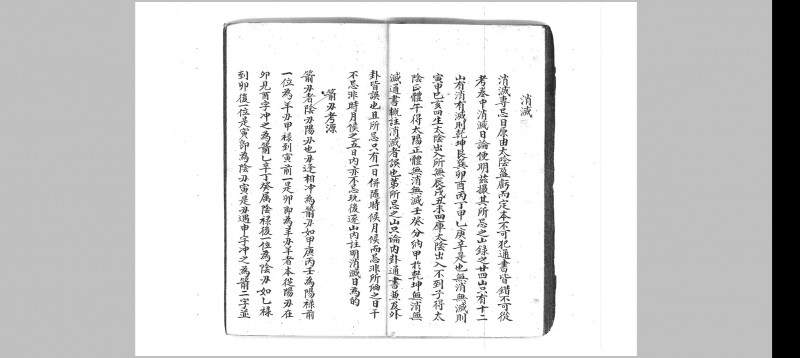 消滅
消滅專忌日原由太陰盈虧而定本不可犯通書皆錯不可從
考叁甲消滅日論便明茲摄其所忌之山錄之廿四山只有十二
山有消有滅則乾坤艮巽卯酉丙丁甲乙庚辛是也無消無滅則
寅申巳亥四生太陰出入所無辰戌丑未四庫太陰出入不到子得太
陰艮體午得太陽正體無消無滅壬癸分納甲於乾坤無消無
滅通書概註消滅者誤也第所忌之山只論内卦通書兼及外
卦皆誤也且所忌只有一日併隨時候月候而忌非所細之日干
不忌非時月候之五日内亦不忌玩後逐山内註明消滅日為的
箭刃考源
箭刃者陰刃陽刃也刃逢相冲為箭刃如甲庚丙壬為陽祿前
一位為羊刃甲祿到寅前一是卯即為羊刃羊者本從陽刃在
卯見酉字冲之為箭乙辛丁癸属陰祿後一位為陰刃如乙祿
到卯後一位是寅即為陰刃寅是刃遇申字冲之為箭二字並